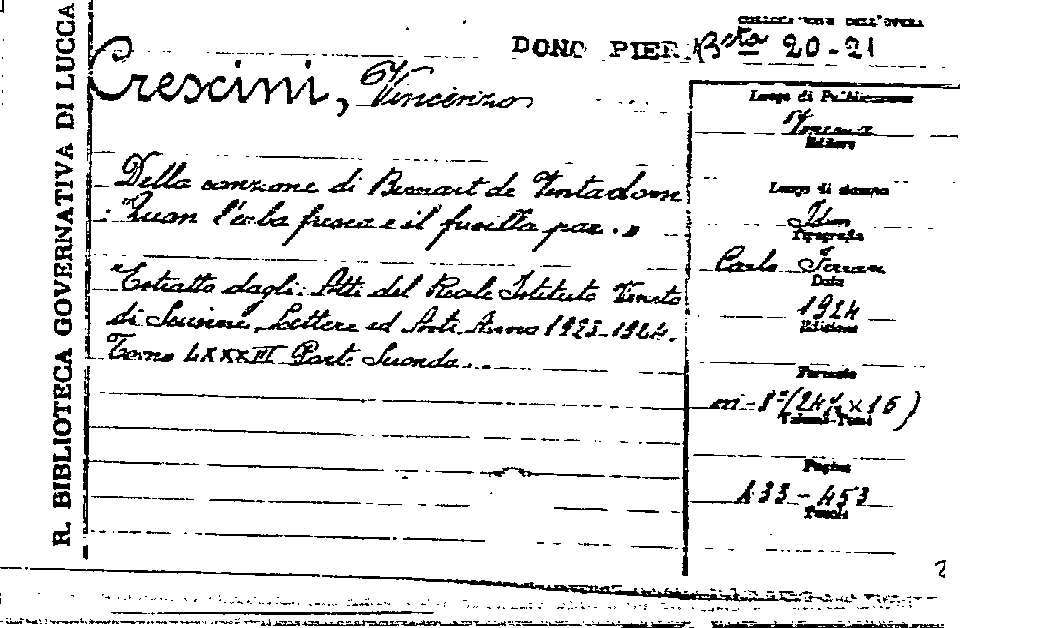 R. BIBLIOTECA GOVERNATIVA DI LUCCA
COLLOCAZIONE DELL'OPERA
DONO PIER Bsta 20-21
Crescini, Vincenzo
Della canzone di Bernart de Ventadorn
: "Quan l'erba fresca e il fueilla par."
"Estratto dagli: Atti del Reale Istituto Veneto
di Scienze, Lettere ed Arti. Anno 1923-1924.
Tomo LXXXIII Parte Seconda..
Luogo di Pubblicazione
Venezia
Editore
Luogo di stampa
Idem
Tipografia
Carlo Ferrari
Data
1924
Edizione
Formato
in-8° (24½ x 16)
Volume-Tomo
Pagine
433-453
Tavole